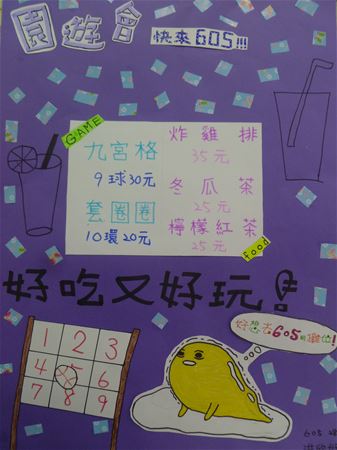 園遊會
快來605!!!
GAME
九宮格
9球30元
套圈圈
10環20元
炸雞排
35元
冬瓜茶
25元
檸檬紅茶
25元
food
好吃又好玩!
好想去605的攤位!
1 2 3
4 5 6
7 8 9
605